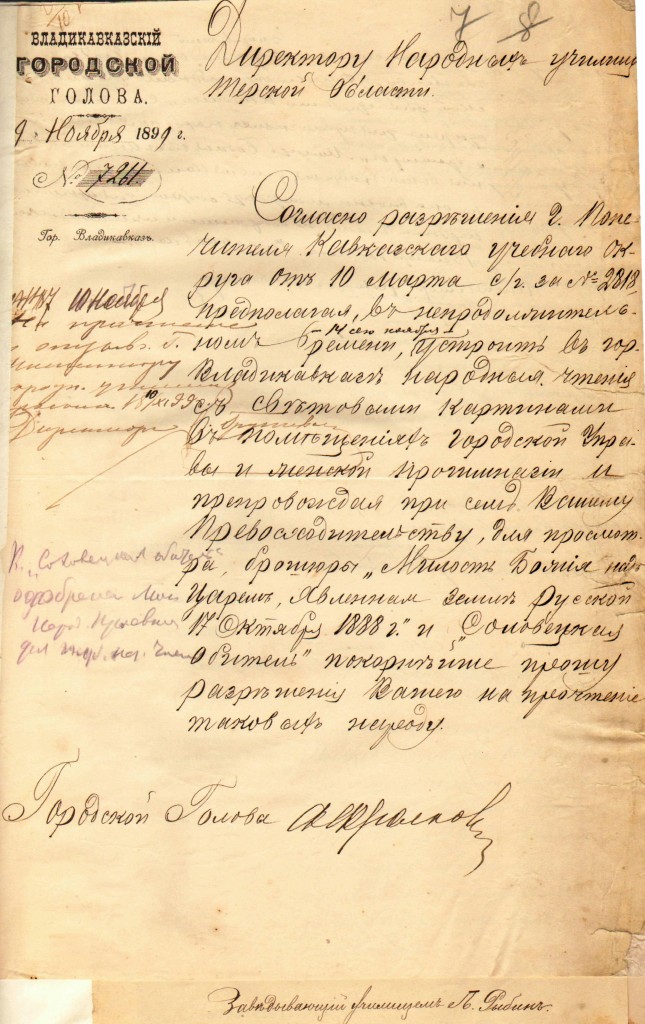 7 8
ВЛАДИКАВКАЗСКІЙ
ГОРОДСКОЙ
ГОЛОВА.
9 Ноября 1899 г.
№ 7261.
Гор. Владикавказъ.
Директору Народныхъ училищ
Терской Области.
Согласно разрѣшенія Г. Попе-
чителя Кавказскаго учебнаго Ок-
руга отъ 10 Марта с/г. за № 2818
предполагая, въ непродолжитель-
14 сен ноября
номъ времени, устроить въ гор.
Владикавказѣ народныя чтенія
съ свѣтовыми картинами
въ помѣщеніяхъ городской Упра-
вы и женской прогимназіи и
препровождая при семъ Вашему
Превосходительству, для просмот-
ра, брошюры „Милость Божія надъ
Царемъ, явленная землѣ русской
17 Октября 1888 г." и „Соловецкая
обитель" покорнѣйше прошу
разрѣшенія Вашего на прочтеніе
таковыхъ народу.
10 Ноября
Директоръ
К. „Соловецкая обитель"
одобрена Мин
Нар. Просвѣщ.
для нар. чтен
Городской Голова
Завѣдывающій училищемъ Л. Рыбинъ.